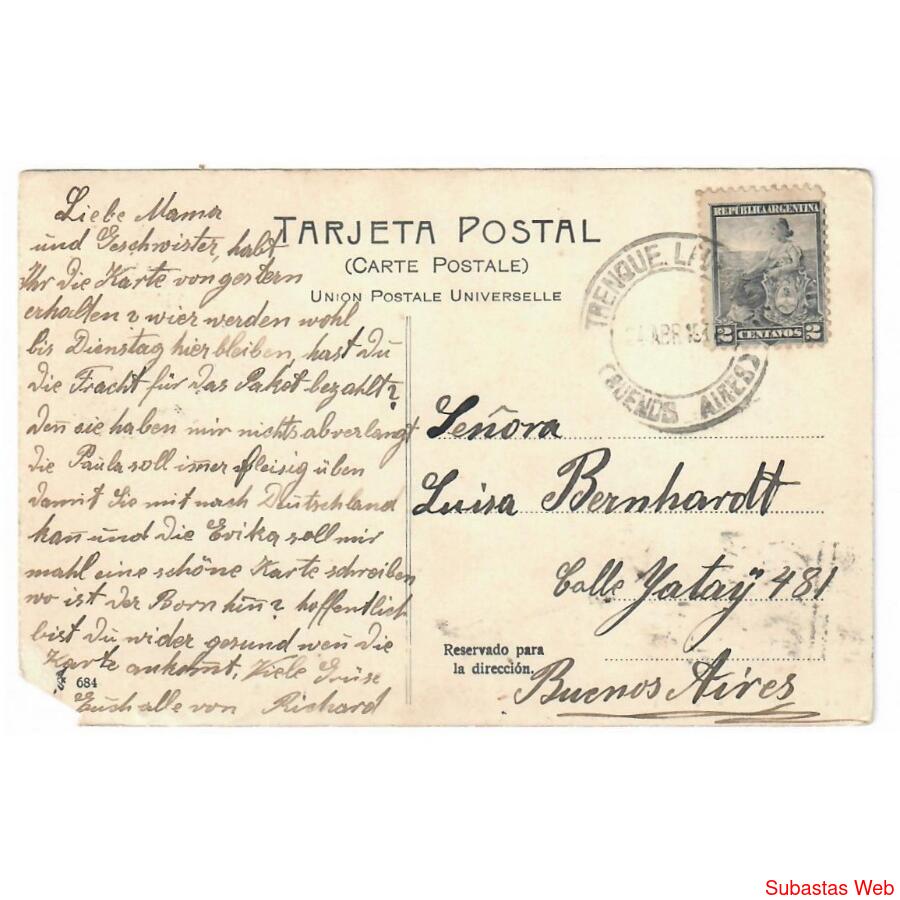 Liebe Mama
und Geschwister, habt
Ihr die Karte von gestern
erhalten? wier werden wohl
bis Dienstag hier bleiben, hast du
die Fracht für das Paket bezahlt?
den̄ sie haben mir nichts abverlangt
die Paula soll im̄er fleisig üben
damit Sie mit nach Deutschland
kan̄ und die Erika soll mir
mahl eine schöne Karte schreiben
wo ist der Born hin̄? hoffentlich
bist du wider gesund wen̄ die
Karte ankom̄t, Viele Grüse
Euch alle von Richard
684
TARJETA POSTAL
(CARTE POSTALE)
UNION POSTALE UNIVERSELLE
REPUBLICA ARGENTINA
2 CENTAVOS 2
TRENQUE
ABR
(BUENOS AIRES)
Señora
Luisa Bernhardt
Calle Yataÿ 481
Reservado para
la dirección.
Buenos Aires
Subastas Web